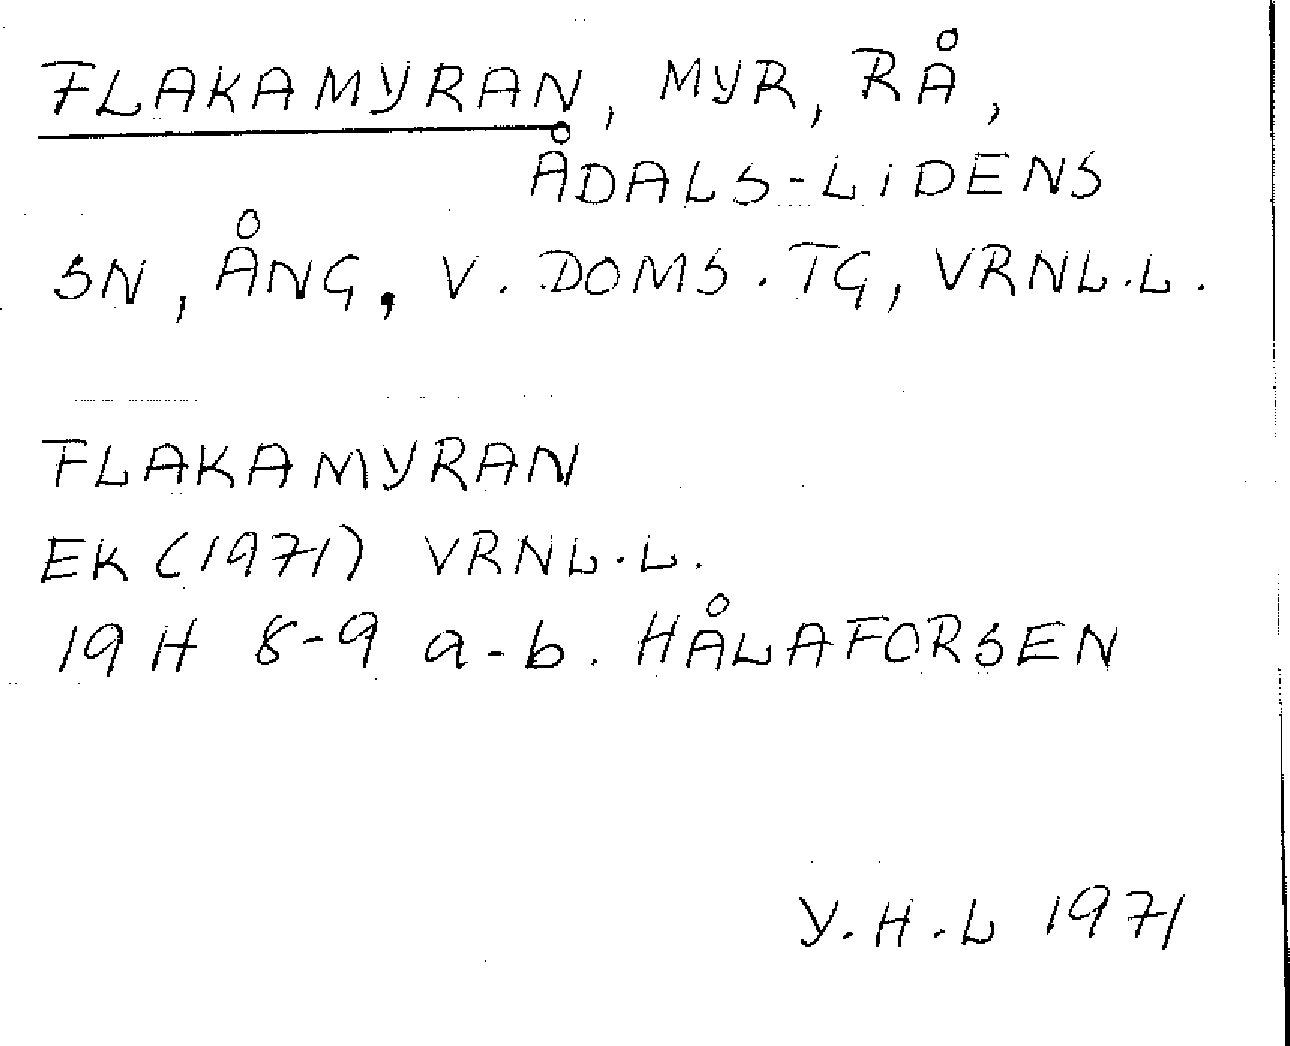 FLAKAMYRAN, MYR, RÅ,
ÅDALS-LIDENS
SN, ÅNG, V. DOMS. TG, VRNL.L.
FLAKAMYRAN
EK (1971) VRNL.L.
19 H 8-9 a-b. HÅLAFORSEN
Y.H.L 1971